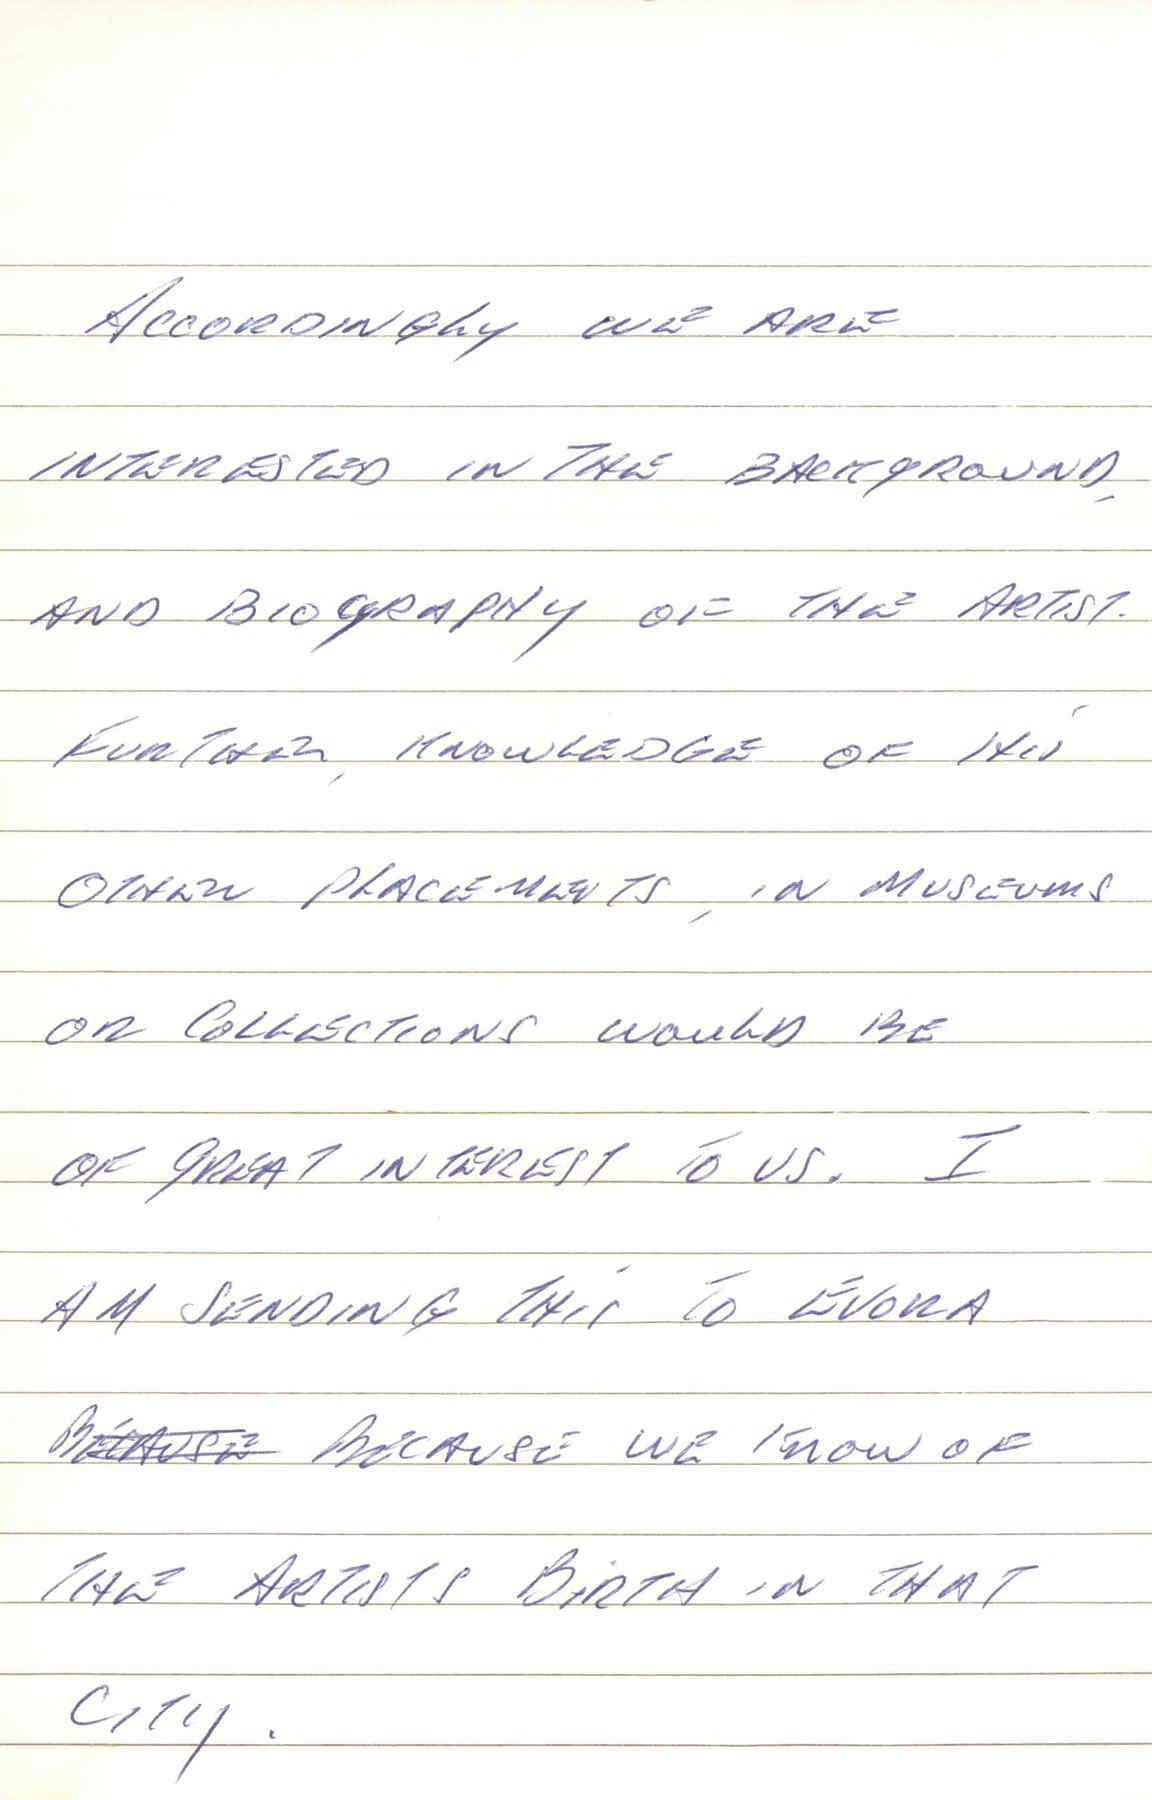 Accordingly we are
interested in the background,
and biography of the artist.
Further, knowledge of his
other placements, in museums
or collections would be
of great interest to us. I
am sending this to Evora
Because Because we know of
the artists birth in that
city.